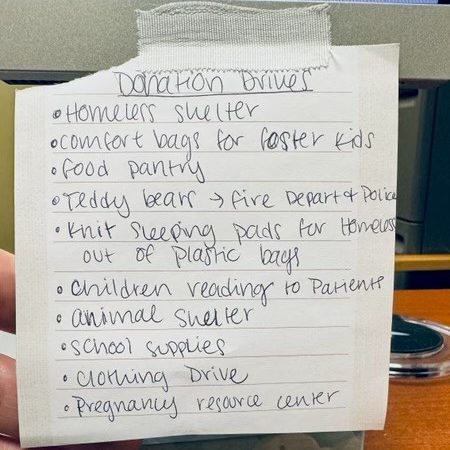 Donation Drives
• Homeless shelter
• comfort bags for foster kids
• food pantry
• Teddy bears → Fire Depart & Police
• Knit sleeping pads for Homeless
out of plastic bags
• Children reading to Patients
• animal shelter
• school supplies
• Clothing Drive
• Pregnancy resource center